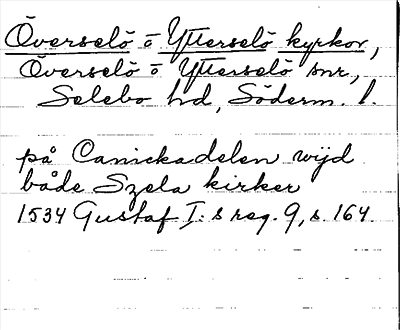 Överselö o Ytterselö kyrkor,
Överselö o Ytterselö snr,
Selebo hd, Söderm. l.
på Canickadelen wijd
både Szela kirker
1534 Gustaf I:s reg. 9, s. 164.